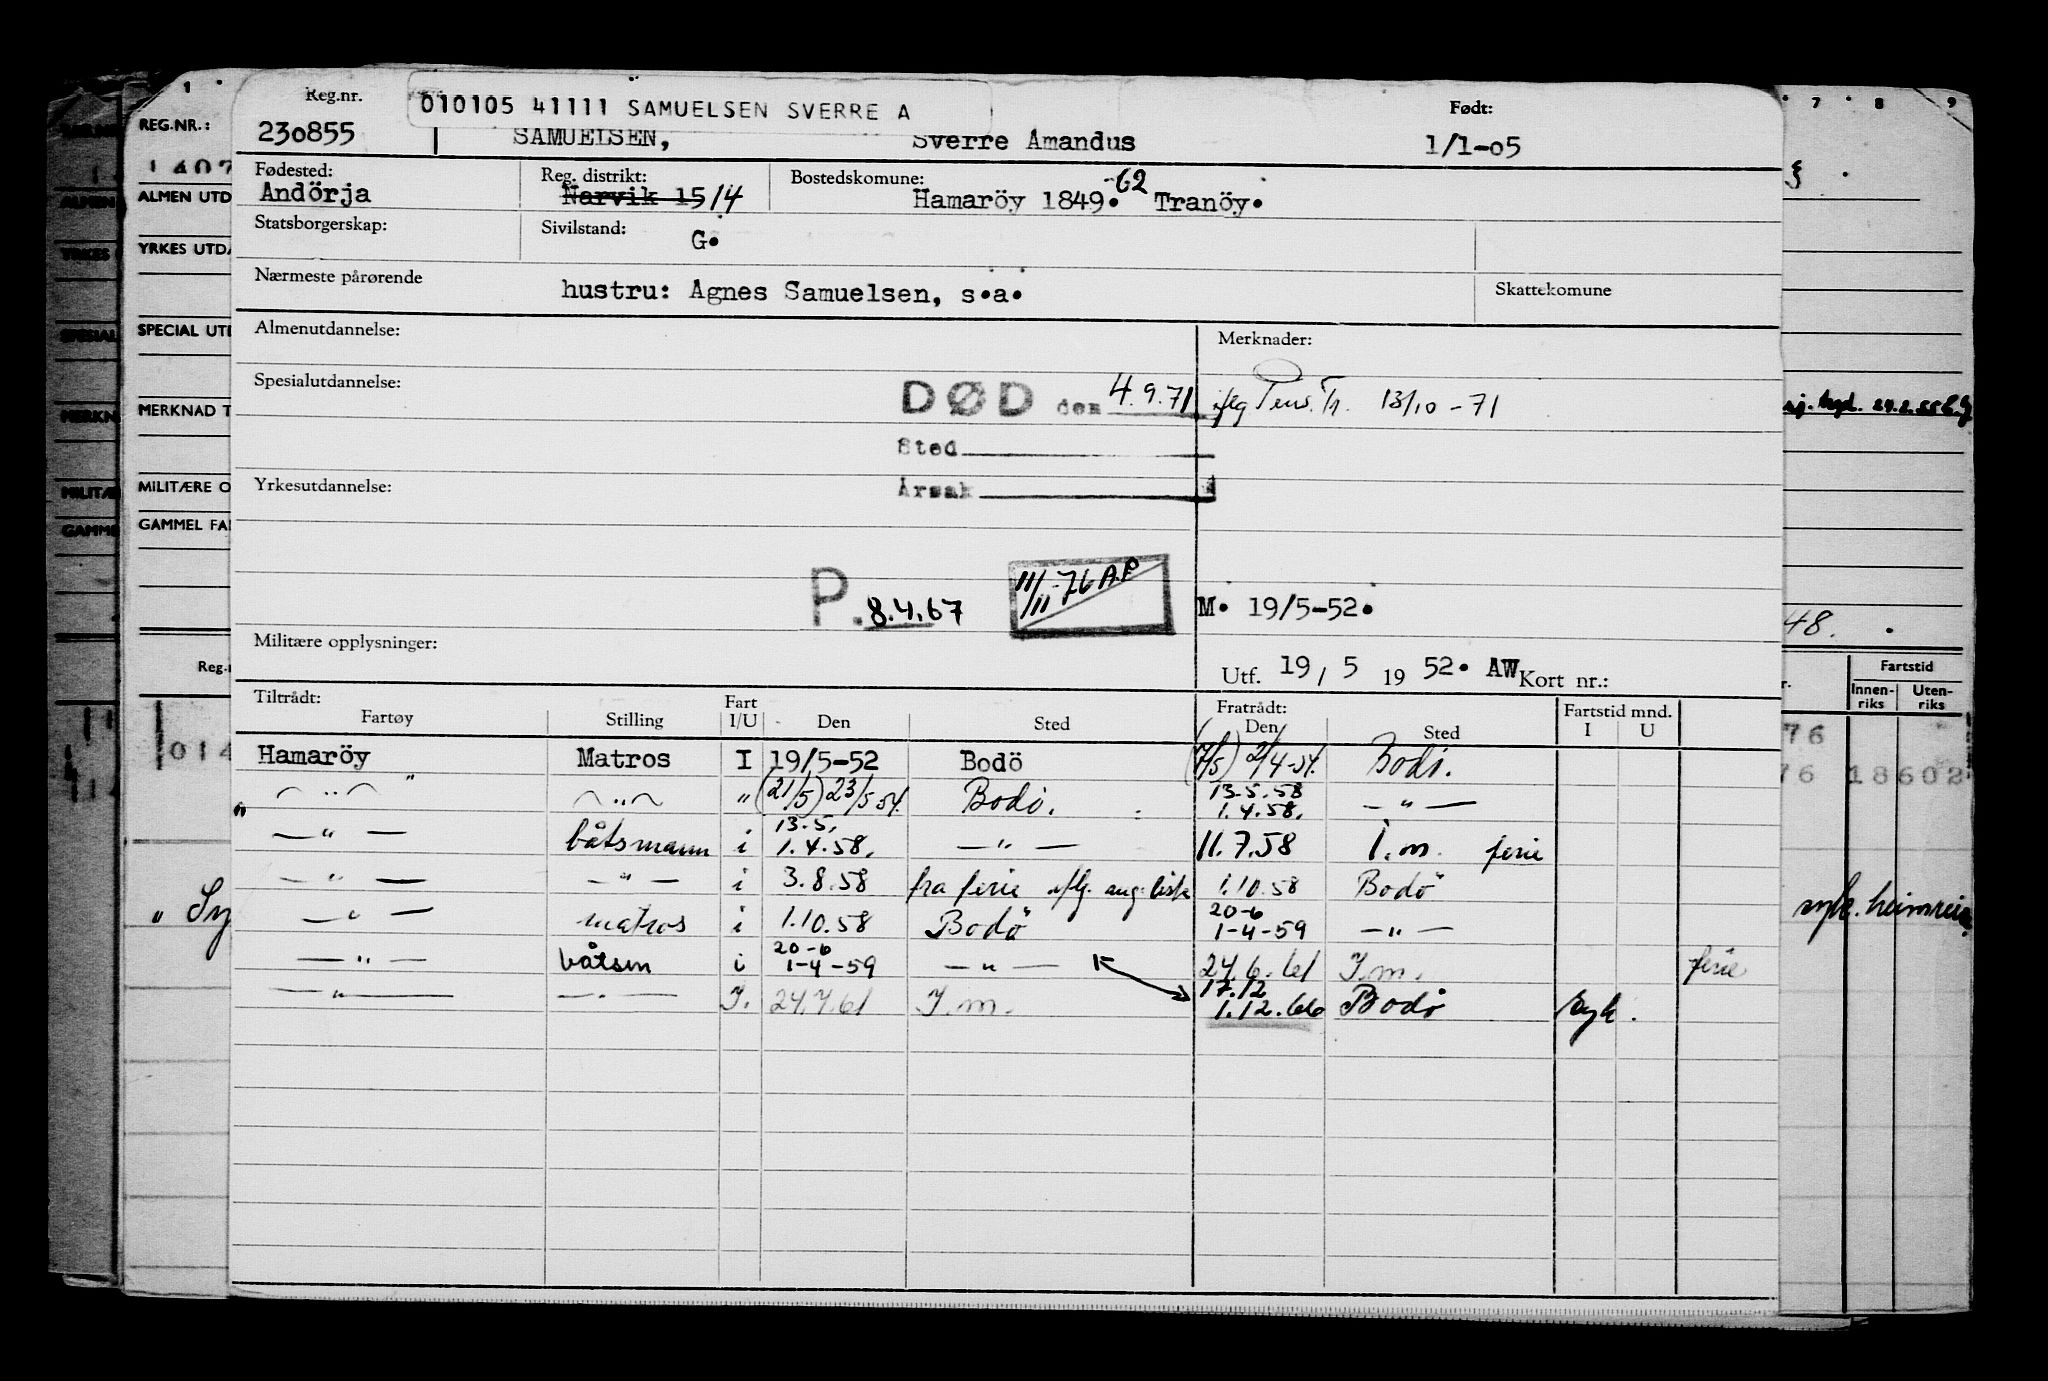 Reg.nr. 010105 41111 SAMUELSEN SVERRE A Født:
230855 SAMUELSEN, Sverre Amandus 1/1-05
Fødested: Reg. distrikt: Bostedskomune: -62
Andörja Narvik 15/4 Hamaröy 1849. Tranöy.
Statsborgerskap: Sivilstand: G.
Nærmeste pårørende hustru: Agnes Samuelsen, s.a. Skattekomune
Almenutdannelse: Merknader:
Spesialutdannelse: DØD den 4.9.71 iflg Pens.Tr. 13/10-71
Sted
Yrkesutdannelse: Årsak
P. 8.4.67 11/11-76 A.P M. 19/5-52.
Militære opplysninger:
Utf. 19 / 5 19 52. AW Kort nr.:
Tiltrådt: Fart Fratrådt: Fartstid mnd.
Fartøy Stilling I/U Den Sted Den Sted I U
Hamaröy Matros I 19/5-52 Bodö (7/5) 2/4-54. Bodö.
" " " (21/5) 23/5 54. Bodö. 13.5.58 1.4.58. — " —
— " — båtsmann i 13.5. 1.4.58. — " — 11.7.58 I.m. ferie
— " — — " — i 3.8.58 fra ferie iflg. aug. liste 1.10.58 Bodö
— " — matros i 1.10.58 Bodö 20-6 1-4-59 — " —
— " — båtsm i 20-6 1-4-59 — " — 24.6.61 I.m. ferie
— " — — " — I. 24.7.61 I.m. 17.12 1.12.66 Bodö syk.
REG.NR.:
ALMEN UTD
YRKES UTDA
SPECIAL UTD
MERKNAD T
MILITÆRE O
GAMMEL FA
Reg.n
014
" Sy
7 8 9
48.
Fartstid
Innen-riks Uten-riks
76
76 18602
syk. heimreise